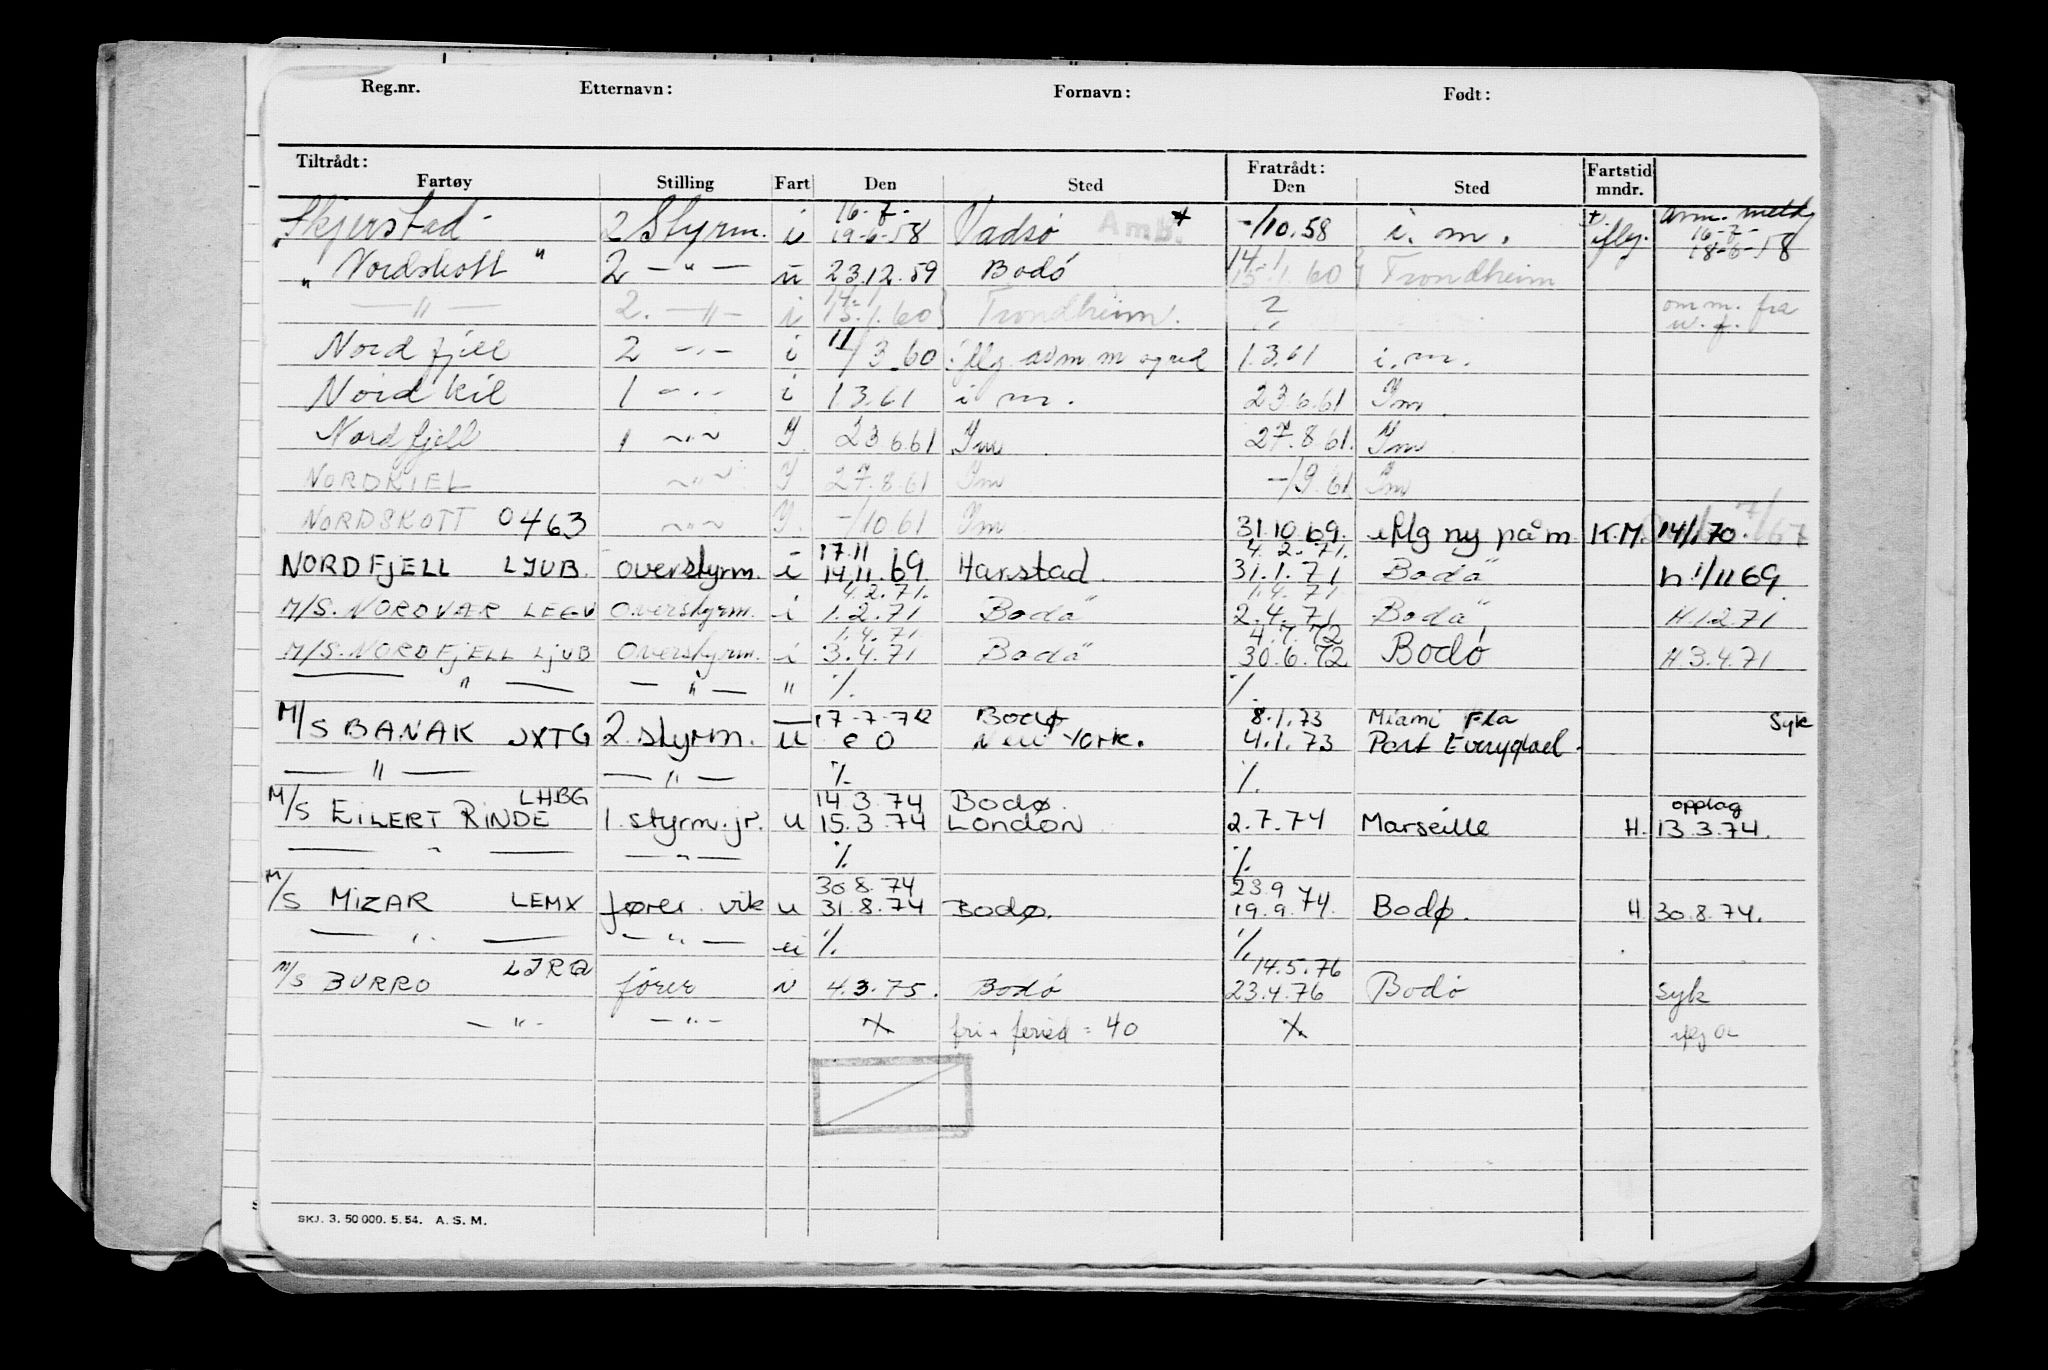 Reg.nr. Etternavn: Fornavn: Født:
Tiltrådt: Fratrådt: Fartstid
Fartøy Stilling Fart Den Sted Den Sted mndr.
16-7-
Skjerstad 2 Styrm. i 19-6-58 Vadsø Amb. + -/10.58 i. m. + iflg. 16-7- 18-6-58
14.1
" Nordskott " 2 — " — u 23.12.59 Bodó 15.1.60 Trondheim
14.1
— " — 2. — " — i 15.1.60 Trondheim. ? omm. fra u. f.
11
Nordfjell 2 — " — i -/3.60 iflg. m 1.3.61 i. m.
Nordkil 1 — " — i 1 3.61 i m. 23.6.61 Im.
Nordfjell 1 ~ " ~ Y. 23 6.61 Im 27.8 61. Im
NORDKIEL ~ " ~ Y 27.8.61 Im -/9.61 Im
NORDSKOTT 0463 ~ " ~ Y. -/10.61 Im 31.10.69. iflg ny på m K.M. 14/1.70.
17.11 4.2.71.
NORDFJELL LJUB. overstyrm. i 14.11.69 Harstad. 31.1.71 Bodø" h 1/11 69.
4.2.71. 1.4.71
M/S. NORDVAR LEGV Overstyrm. i 1.2.71 Bodø" 2.4.71 Bodø" H.1.2.71
1.4.71 4.7.72
M/S. NORDFJELL LJUB Overstyrm. i 3.4.71 Bodø" 30.6.72 Bodó H.3.4.71
— " — — " — " ./. ./.
17-7-72 Bodø 8.1.73 Miami Fla Syk
M/S BANAK JXTG 2. styrm. u e O New York. 4.1.73 Port
— " — — " — ./. ./.
LHBG 14.3.74 Bodø. opplag
M/S EILERT RINDE 1. styrm. jr. u 15.3.74 LONDON 2.7.74 Marseille H. 13.3.74.
— " — — " — ./. ./.
30.8.74 23.9
M/S MIZAR LEMX fører vik u 31.8.74 Bodø. 19.9.74. Bodø. H 30.8.74.
— " — — " — u ./. ./.
LJRQ 14.5.76
M/S BURRO fører 4.3.75. Bodó 23.4.76 Bodó Syk
— " — — " — ./. fri + feried = 40 ./.
SKJ. 3. 50 000. 5. 54. A. S. M.